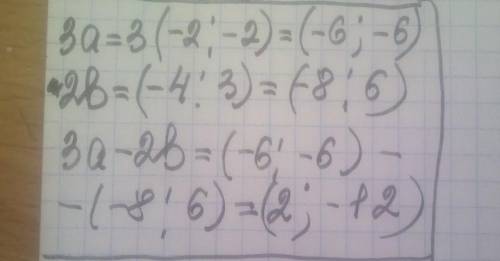 3a=3(-2;-2)=(-6;-6)
2b=(-4;3)=(-8;6)
3a-2b=(-6;-6)-
-(-8;6)=(2;-12)